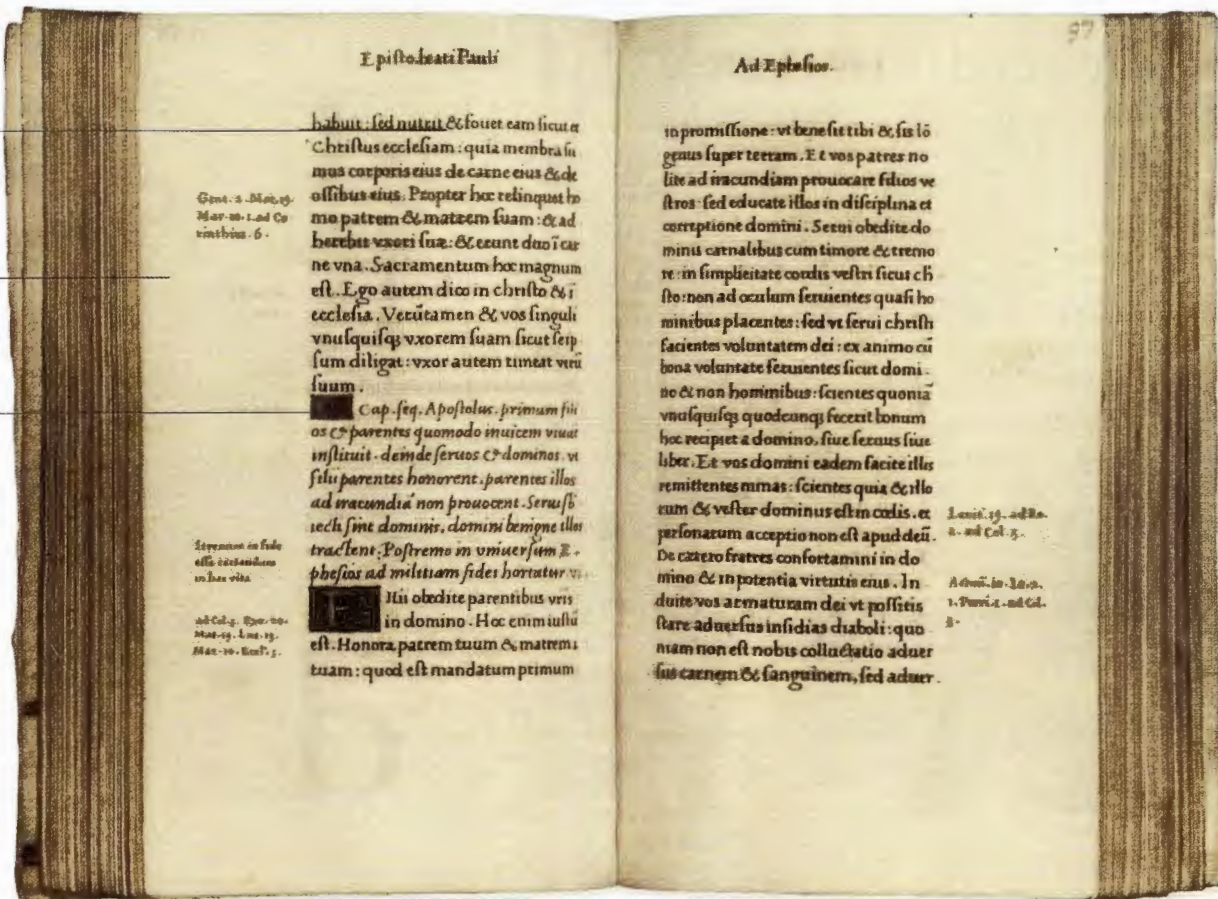 Episto.beati Pauli
habuit : sed nutrit & fouet eam sicut et
Christus ecclesiam : quia membra su
mus corporis eius de carne eius & de
ossibus eius. Propter hoc relinquet ho
mo patrem & matrem suam : & ad
herebit vxori suæ : & erunt duo ī car
ne vna. Sacramentum hoc magnum
est. Ego autem dico in christo & ī
ecclesia. Verūtamen & vos singuli
vnusquisq; vxorem suam sicut seip
sum diligat : vxor autem timeat virū
suum.
Cap. seq. Apostolus. primum fili
os & parentes quomodo inuicem viuāt
instituit. deinde seruos & dominos. vt
filii parentes honorent. parentes illos
ad iracundiā non prouocent. Serui
sint dominis, domini benigne illos
tractent. Postremo in vniuersum E-
phesios ad militiam fidei hortatur
Filii obedite parentibus vris
in domino. Hoc enim iustū
est. Honora patrem tuum & matrem
tuam : quod est mandatum primum
Gene. 2. Mat. 19.
Mar. 10. 1. ad Co
rinthios. 6.
in fide
esse
in hac vita
ad Col. 3. Exo. 20.
Mat. 19. Luc. 13.
Mar. 10.
97
Ad Ephesios.
in promissione : vt bene sit tibi & sis lō
geuus super terram. Et vos patres no
lite ad iracundiam prouocare filios ve
stros : sed educate illos in disciplina et
correptione domini. Serui obedite do
minis carnalibus cum timore & tremo
re : in simplicitate cordis vestri sicut ch̄
sto : non ad oculum seruientes quasi ho
minibus placentes : sed vt serui christi
facientes voluntatem dei : ex animo cū
bona voluntate seruientes sicut domi-
no & non hominibus : scientes quoniā
vnusquisq; quodcunq; fecerit bonum
hoc recipiet a domino, siue seruus siue
liber. Et vos domini eadem facite illis
remittentes minas : scientes quia & illo
rum & vester dominus est in cœlis. et
personarum acceptio non est apud deū.
De cætero fratres confortamini in do
mino & in potentia virtutis eius. In
duite vos armaturam dei vt possitis
stare aduersus insidias diaboli : quo
niam non est nobis colluctatio aduer
sus carnem & sanguinem, sed aduer.
Leuit. 19. ad Ro.
2. ad Col. 3.
Actuū. 10.
ad Col.
3.